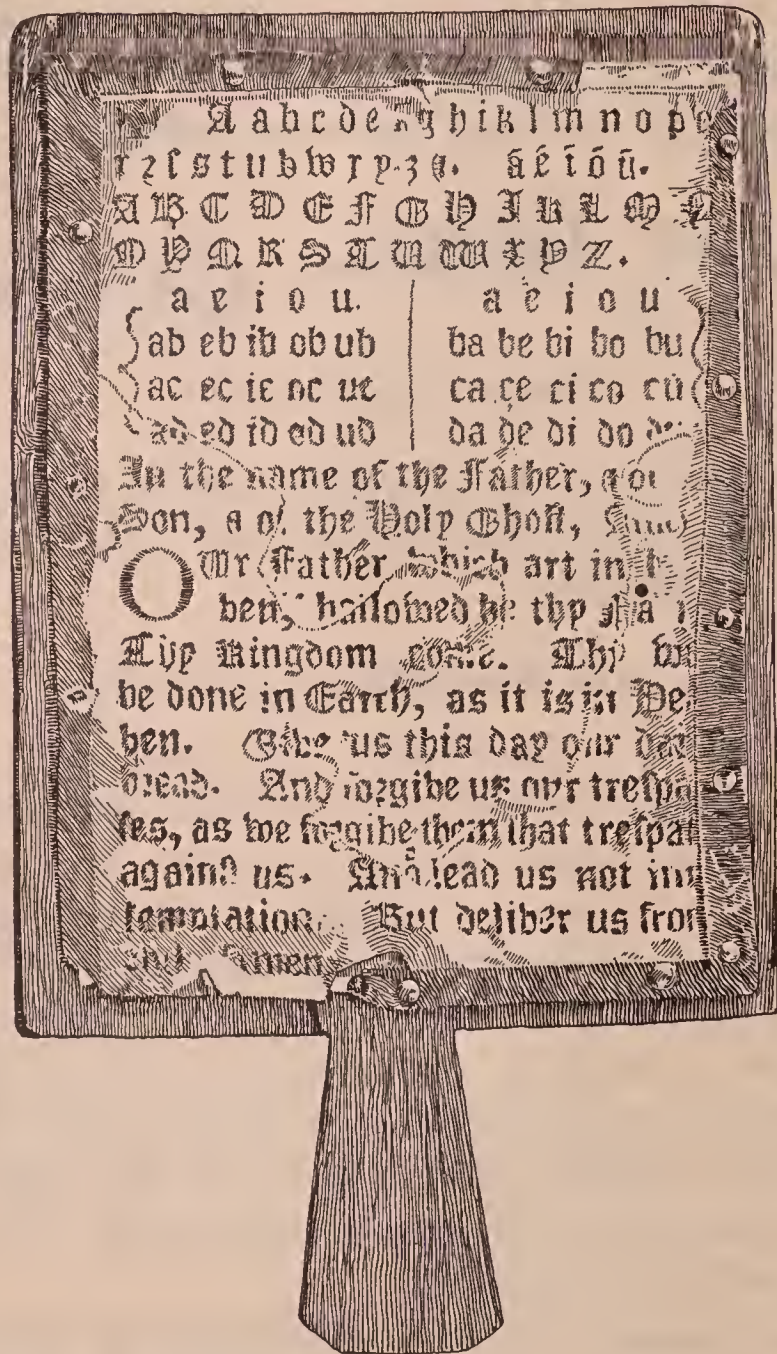 A a b c d e f g h i k l m n o p
r ꝛ ſ s t u v w x y z &. ã ẽ ĩ õ ũ.
A B C D E F G H I K L M N
O P Q R S T U W X Y Z.
a e i o u. a e i o u
ab eb ib ob ub ba be bi bo bu
ac ec ic oc uc ca ce ci co cu
ad ed id od ud da de di do
In the name of the Father, &
Son, & of the Holy Ghoſt,
OUr Father which art in
ven, hallowed be thy
Thy Kingdom come. Thy
be done in Earth, as it is in Hea
ven. Give us this day our
bread. And forgive us our treſpa
ſes, as we forgive them that treſpaſ
againſt us. And lead us not
temptation. But deliver us from
Amen